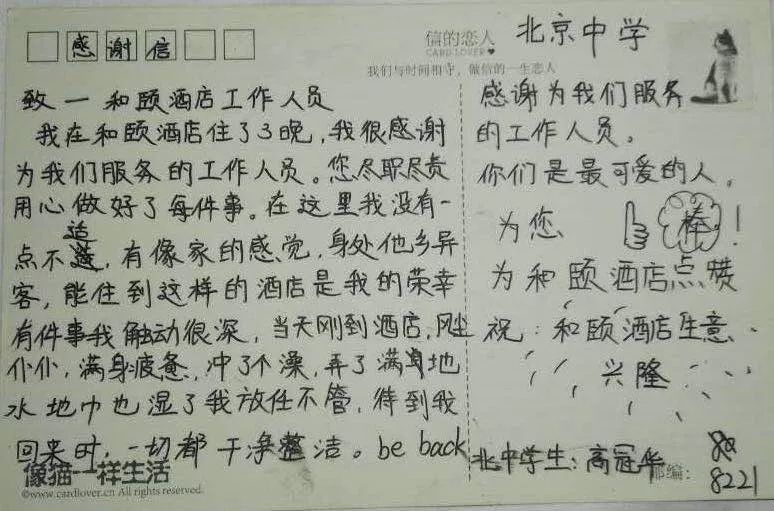 感谢信
致一和颐酒店工作人员
我在和颐酒店住了3晚，我很感谢
为我们服务的工作人员。您尽职尽责
用心做好了每件事。在这里我没有一
点不适，有像家的感觉，身处他乡异
客，能住到这样的酒店是我的荣幸
有件事我触动很深，当天刚到酒店，风尘
仆仆，满身疲惫，冲了个澡，弄了满地
水地巾也湿了我放任不管，待到我
回来时，一切都干净整洁。be back
像猫一样生活
©www.cardlover.cn All rights reserved.
信的恋人
CARD LOVER
我们与时间相守，做信的一生恋人
北京中学
感谢为我们服务
的工作人员。
你们是最可爱的人。
为您 棒！
为和颐酒店点赞
祝：和颐酒店生意
兴隆
北中学生：高冠华
邮编：
8221